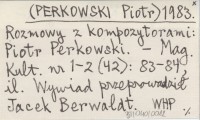 (PERKOWSKI Piotr) 1983.
Rozmowy z kompozytorami:
Piotr Perkowski. – Mag.
Kult. nr 1-2 (42): 83-84,
il. Wywiad przeprowadził
Jacek Berwaldt. WHP %